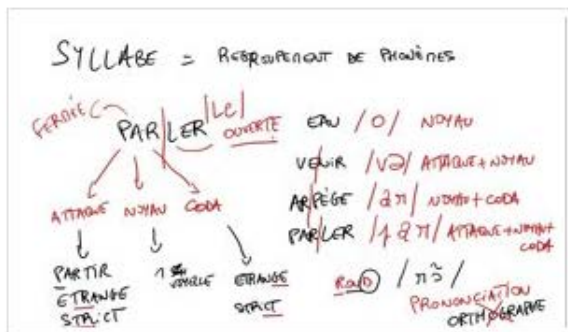 SYLLABE = REGROUPEMENT DE PHONÈMES
FERMÉE PAR|LER /Le/ OUVERTE
ATTAQUE NOYAU CODA
PARTIR
ÉTRANGE
STRICT
1 VOYELLE
ÉTRANGE
STRICT
EAU /O/ NOYAU
VENIR /Və/ ATTAQUE+NOYAU
ARPÈGE /aʀ/ NOYAU+CODA
PARLER /paʀ/ ATTAQUE+NOYAU+
CODA
ROND /ʀɔ̃/
PRONONCIATION
ORTHOGRAPHE